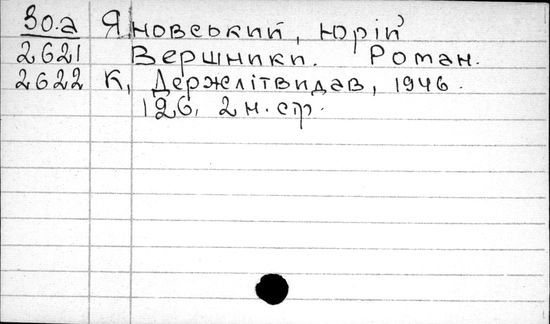 30.а Яновський, Юрій
2621 Вершники. Роман.
2622 К, Держлітвидав, 1946.
126, 2 н. стр.